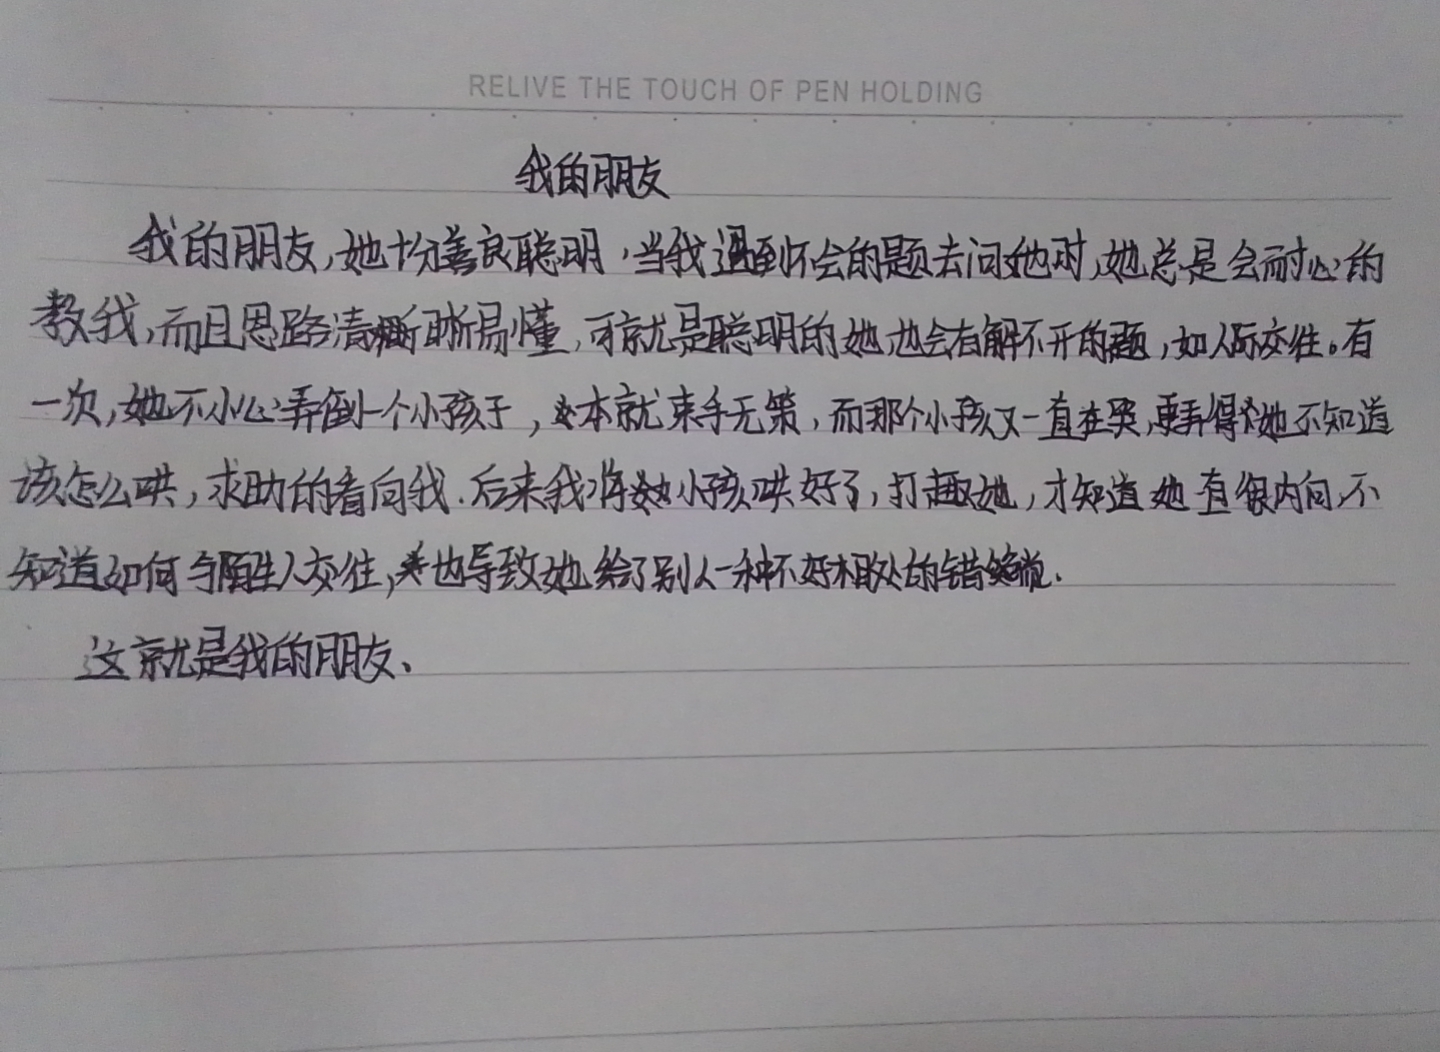 RELIVE THE TOUCH OF PEN HOLDING
我的朋友
我的朋友,她十分善良聪明,当我遇到不会的题去问她时,她总是会耐心的
教我,而且思路清晰易懂,可就是聪明的她,也会有解不开的题,如人际交往。有
一次,她不小心弄倒一个小孩子,本就束手无策,而那个小孩又一直在哭,更弄得她不知道
该怎么哄,求助的看向我.后来我将小孩哄好了,打趣她,才知道她有很内向,不
知道如何与陌生人交往,也导致她给了别人一种不好相处的错觉.
这就是我的朋友、